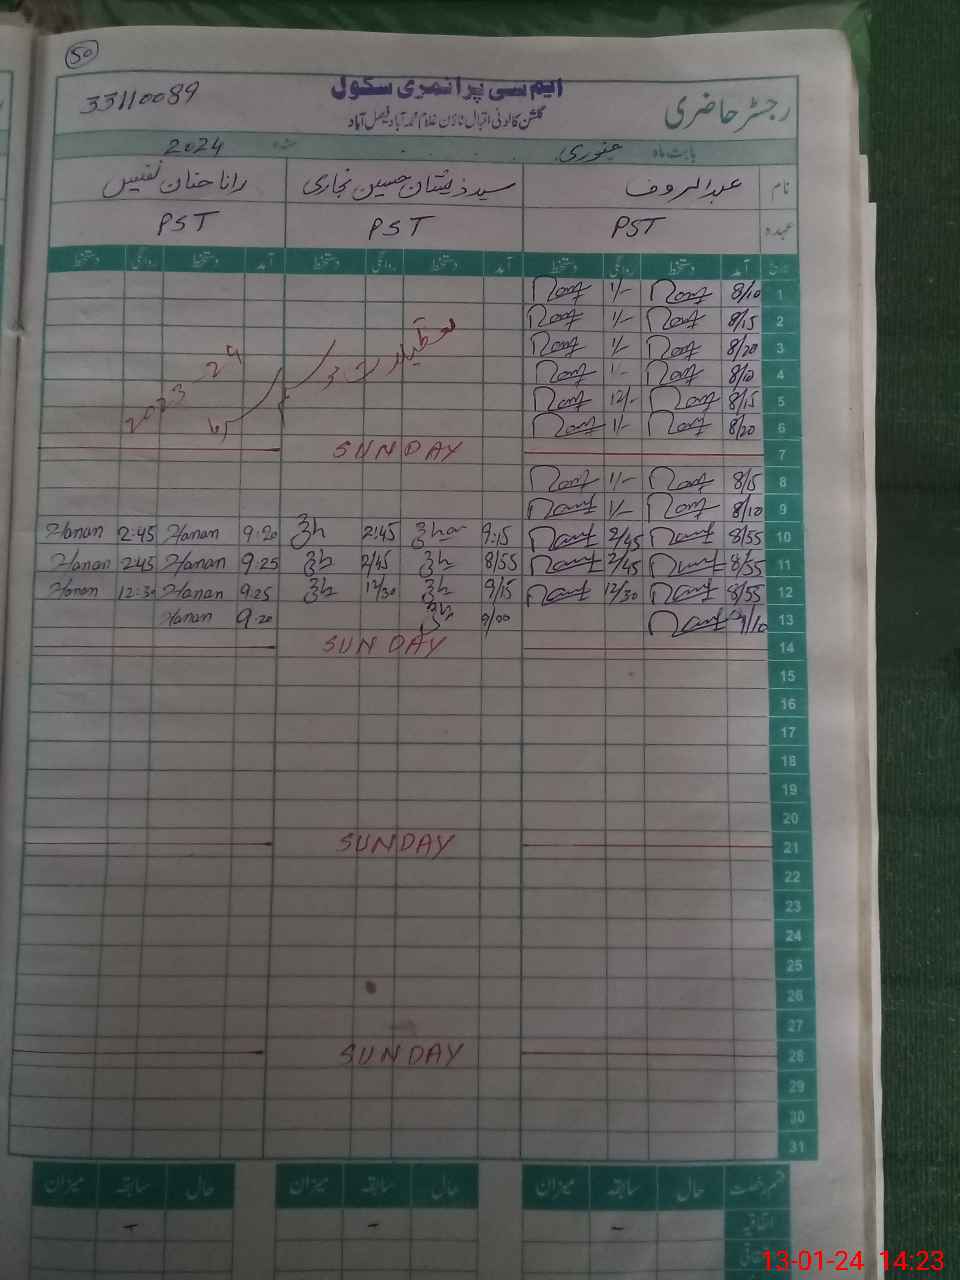 50
33110089
ایم سی پرائمری سکول
رجسٹر حاضری
گلشن کالونی اقبال ٹاؤن غلام محمد آباد فیصل آباد
بابت ماہ جنوری 2024
نام عبدالروف سید ذیشان حسین بخاری رانا حنان نفیس
عہدہ PST PST PST
تاریخ آمد دستخط روانگی دستخط آمد دستخط روانگی دستخط آمد دستخط روانگی دستخط
1 8/10 Rauf 1/- Rauf
2 8/15 Rauf 1/- Rauf
3 8/20 Rauf 1/- Rauf
4 8/10 Rauf 1/- Rauf
5 8/15 Rauf 12/- Rauf
6 8/20 Rauf 1/- Rauf
تعطیلات
2023 - 24
7 SUNDAY
8 8/15 Rauf 1/- Rauf
9 8/10 Rauf 1/- Rauf
10 8/55 Rauf 2/45 Rauf 9:15 2:45 9:20 Hanan 2:45 Hanan
11 8/55 Rauf 2/45 Rauf 8/55 2/45 9:25 Hanan 2:45 Hanan
12 8/55 Rauf 12/30 Rauf 9/15 12/30 9:25 Hanan 12:30 Hanan
13 9/10 Rauf 9/00 9:20 Hanan
14 SUNDAY
15
16
17
18
19
20
21 SUNDAY
22
23
24
25
26
27
28 SUNDAY
29
30
31
قسم رخصت حال سابقہ میزان حال سابقہ میزان حال سابقہ میزان
اتفاقیہ - - -
13-01-24 14:23